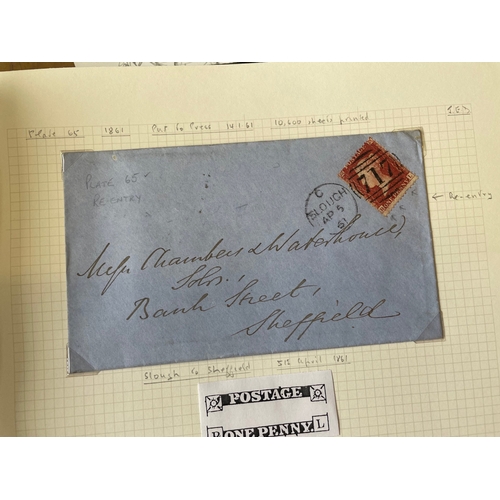 Plate 65 1861 Put to Press 14.1.61 10,600 sheets printed
PLATE 65
RE ENTRY
C
SLOUGH
AP 5
61
717
← Re-entry
Messrs Chambers & Waterhouse,
Solrs.,
Bank Street,
Sheffield
Slough to Sheffield 5th April 1861
POSTAGE
ONE PENNY. L